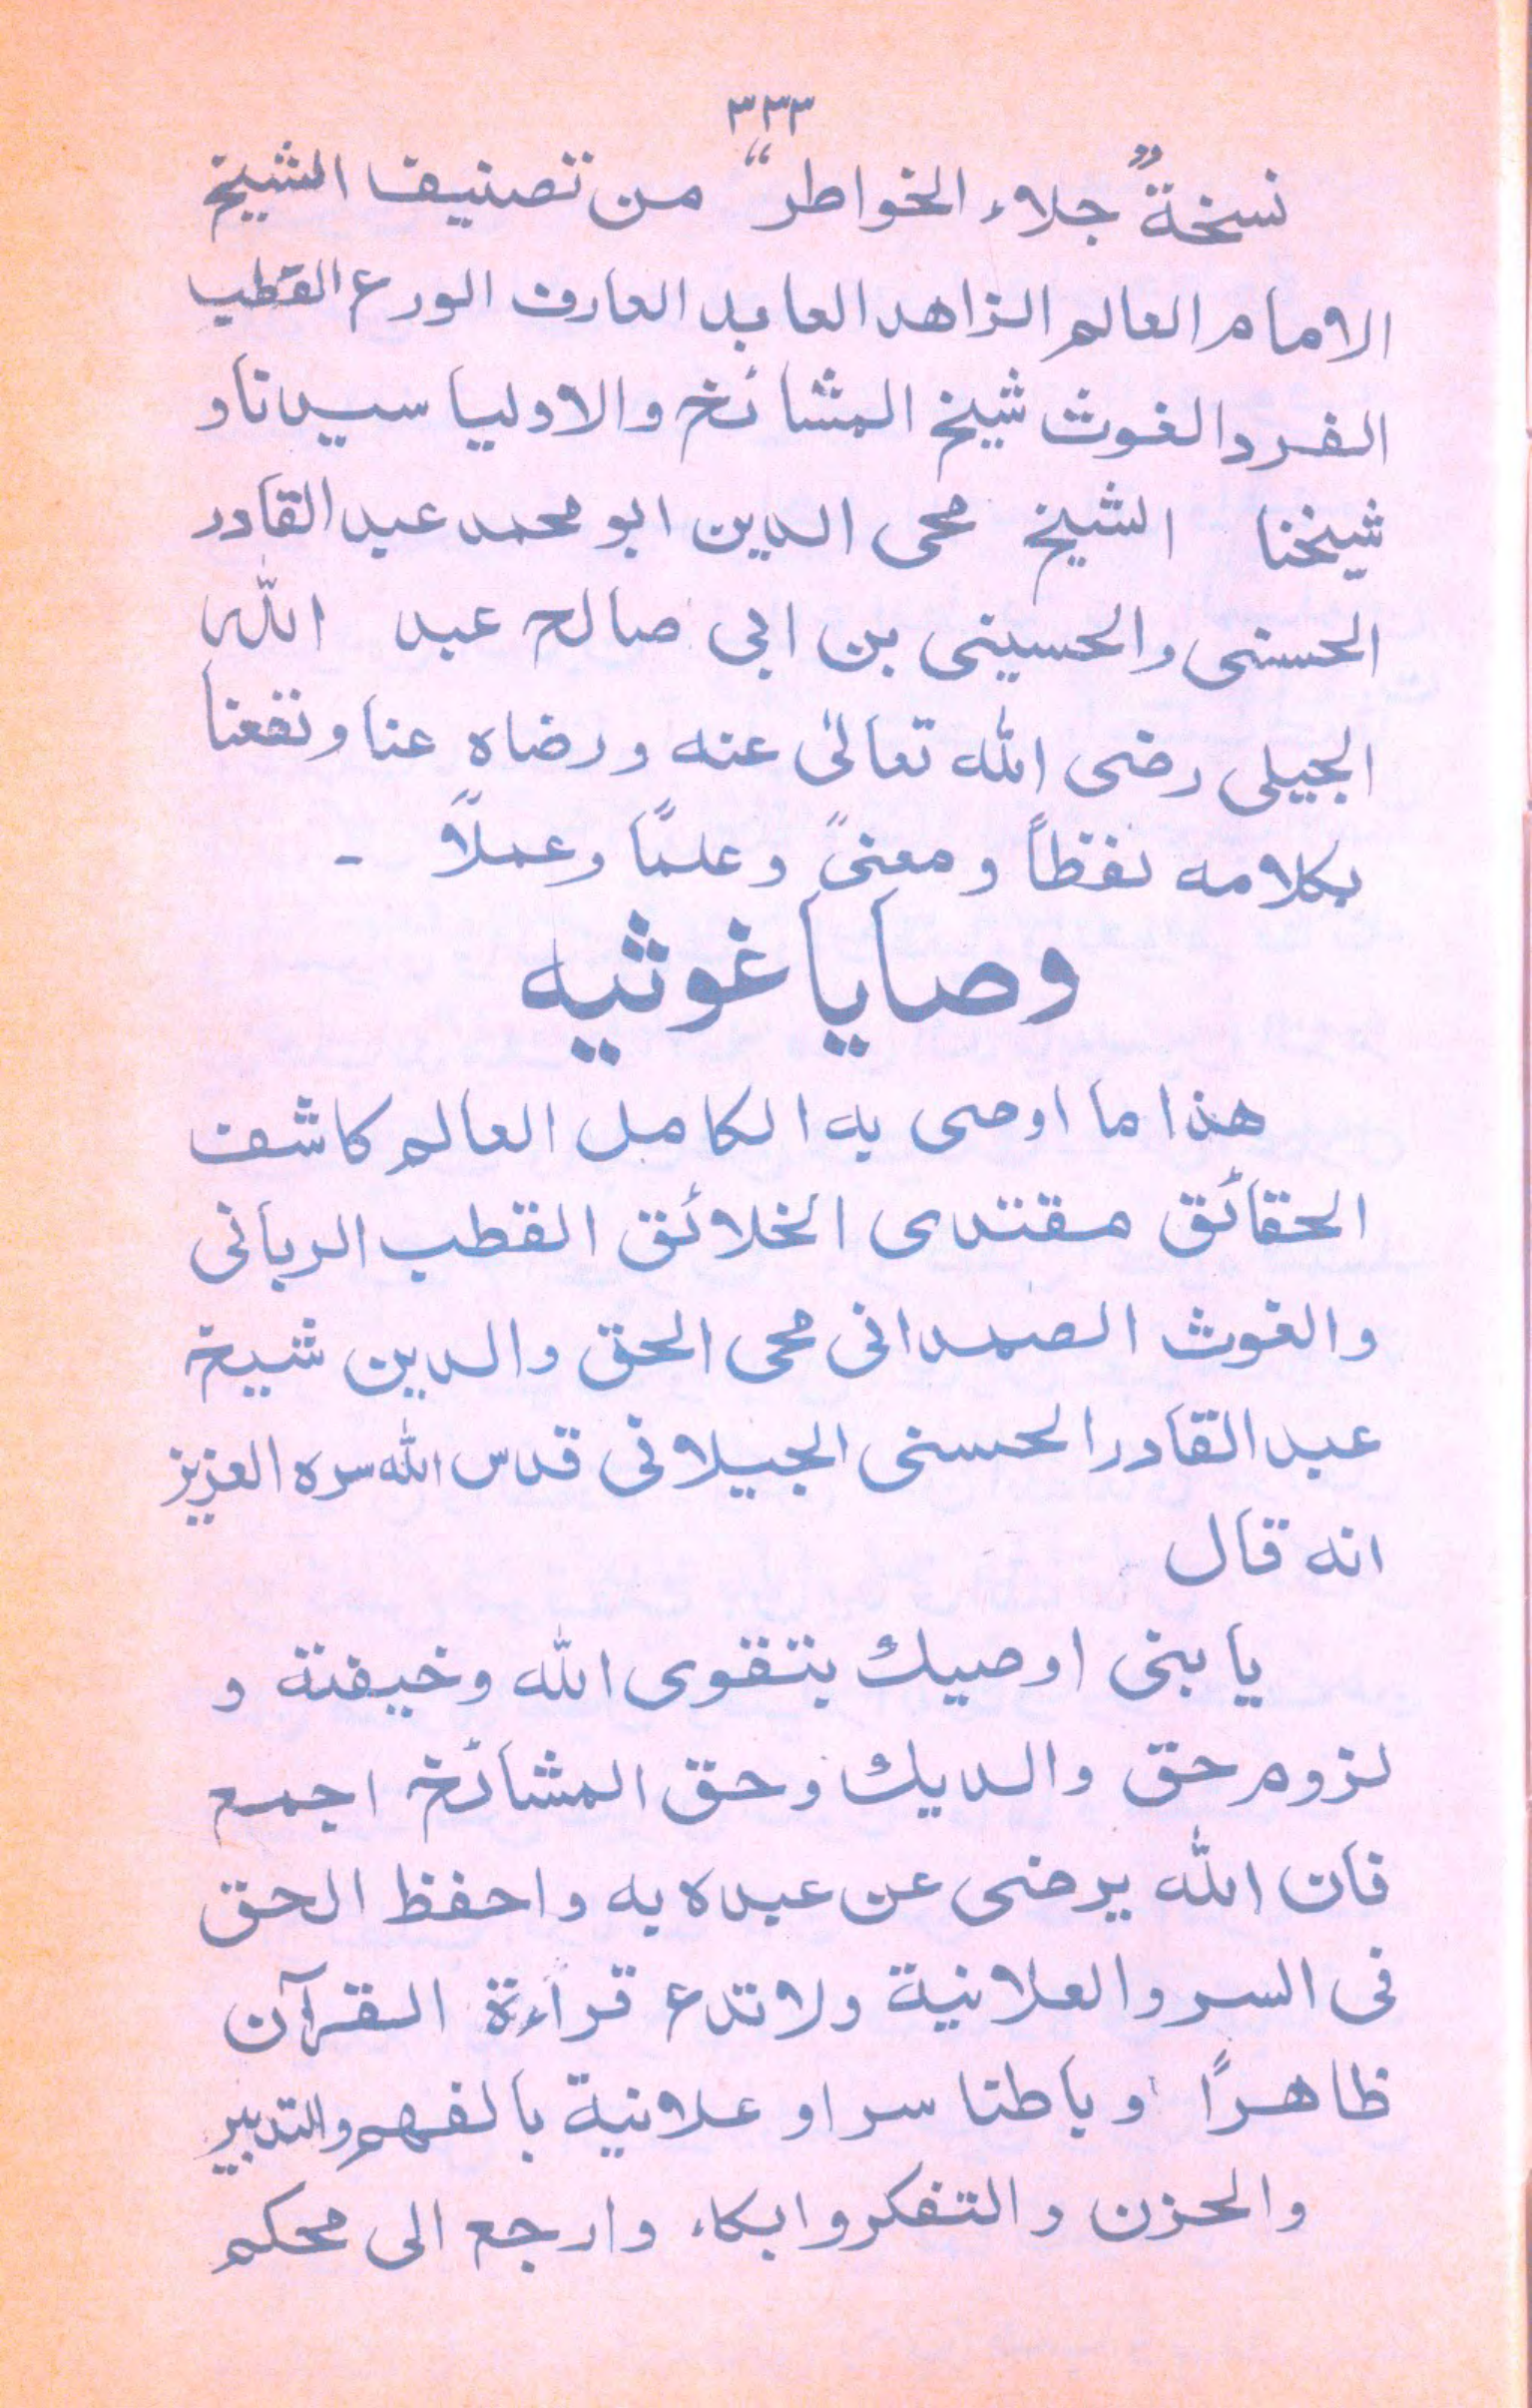 ٣٣٣
نسخة ”جلاء الخواطر“ من تصنيف الشيخ
الامام العالم الزاهد العابد العارف الورع القطب
الفرد الغوث شيخ المشائخ والاوليا سيدنا و
شيخنا الشيخ محى الدين ابو محمد عبد القادر
الحسنى والحسينى بن ابى صالح عبد الله
الجيلى رضى الله تعالىٰ عنه ورضاه عنا ونفعنا
بكلامه لفظاً و معنىً وعلمًا وعملاً -
وصايا غوثيه
هذا ما اوصى به الكامل العالم كاشف
الحقائق مقتدى الخلائق القطب الربانى
والغوث الصمدانى محى الحق والدين شيخ
عبد القادر الحسنى الجيلانى قدس الله سره العزيز
انه قال
يا بنى اوصيك بتقوى الله وخيفتة و
لزوم حق والديك وحق المشائخ اجمع
فان الله يرضى عن عبده به واحفظ الحق
فى السر والعلانية ولا تدع قراءة القرآن
ظاهرًا وباطنا سرا و علانية بالفهم والتدبير
والحزن والتفكر وابكاء وارجع الى محكم